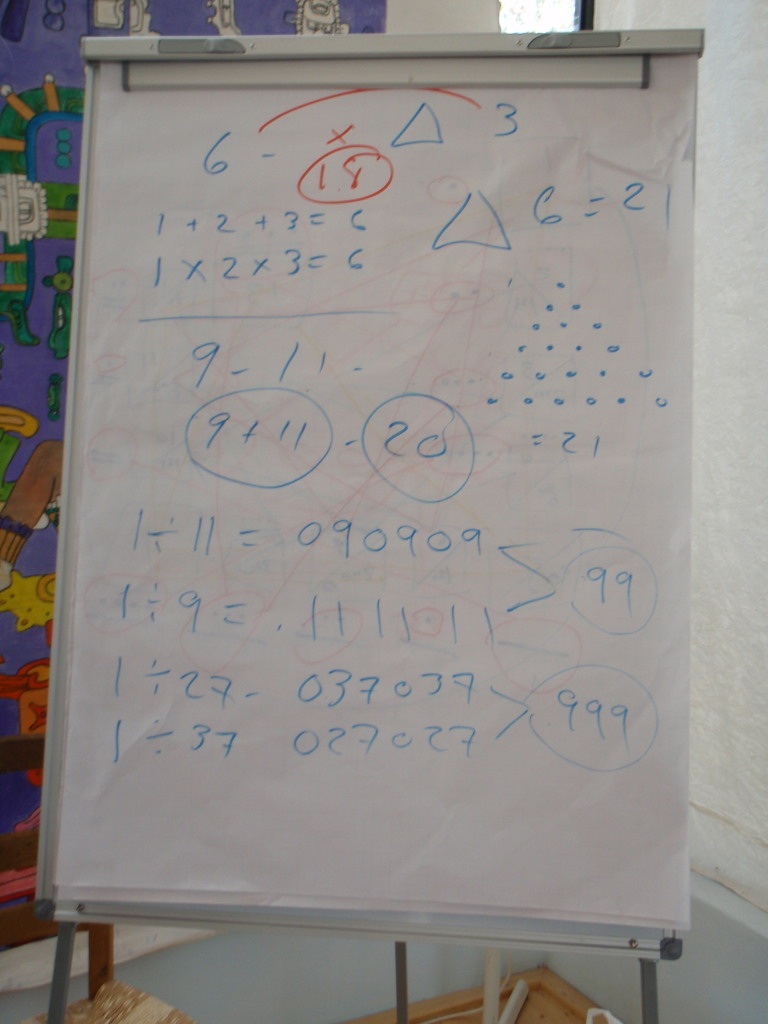 6 - × △ 3
18
1 + 2 + 3 = 6
1 × 2 × 3 = 6
△ 6 = 21
9 - 11 -
9 + 11 - 20
= 21
1 ÷ 11 = 090909
1 ÷ 9 = .1111111
99
1 ÷ 27 - 037037
1 ÷ 37 027027
999